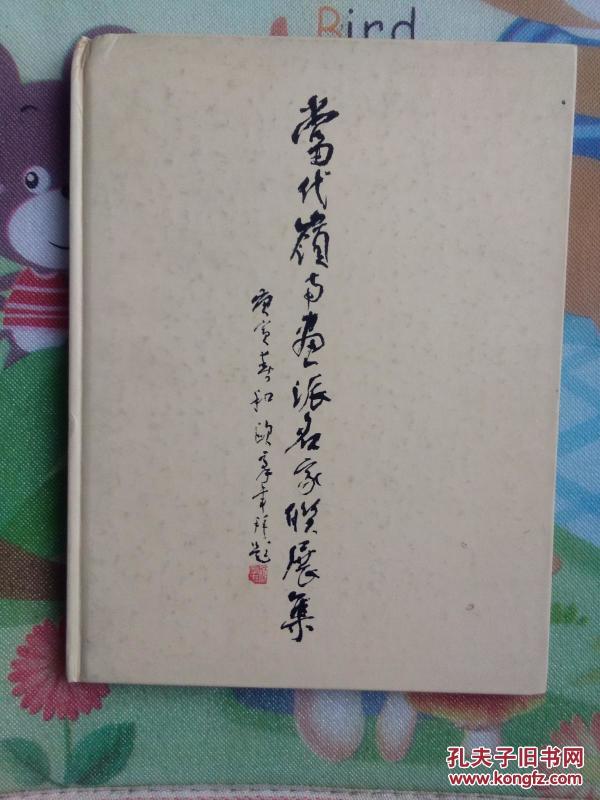 Bird
當代嶺南畫派名家聯展集
庚寅春和歐豪年拜題
孔夫子旧书网
www.kongfz.com